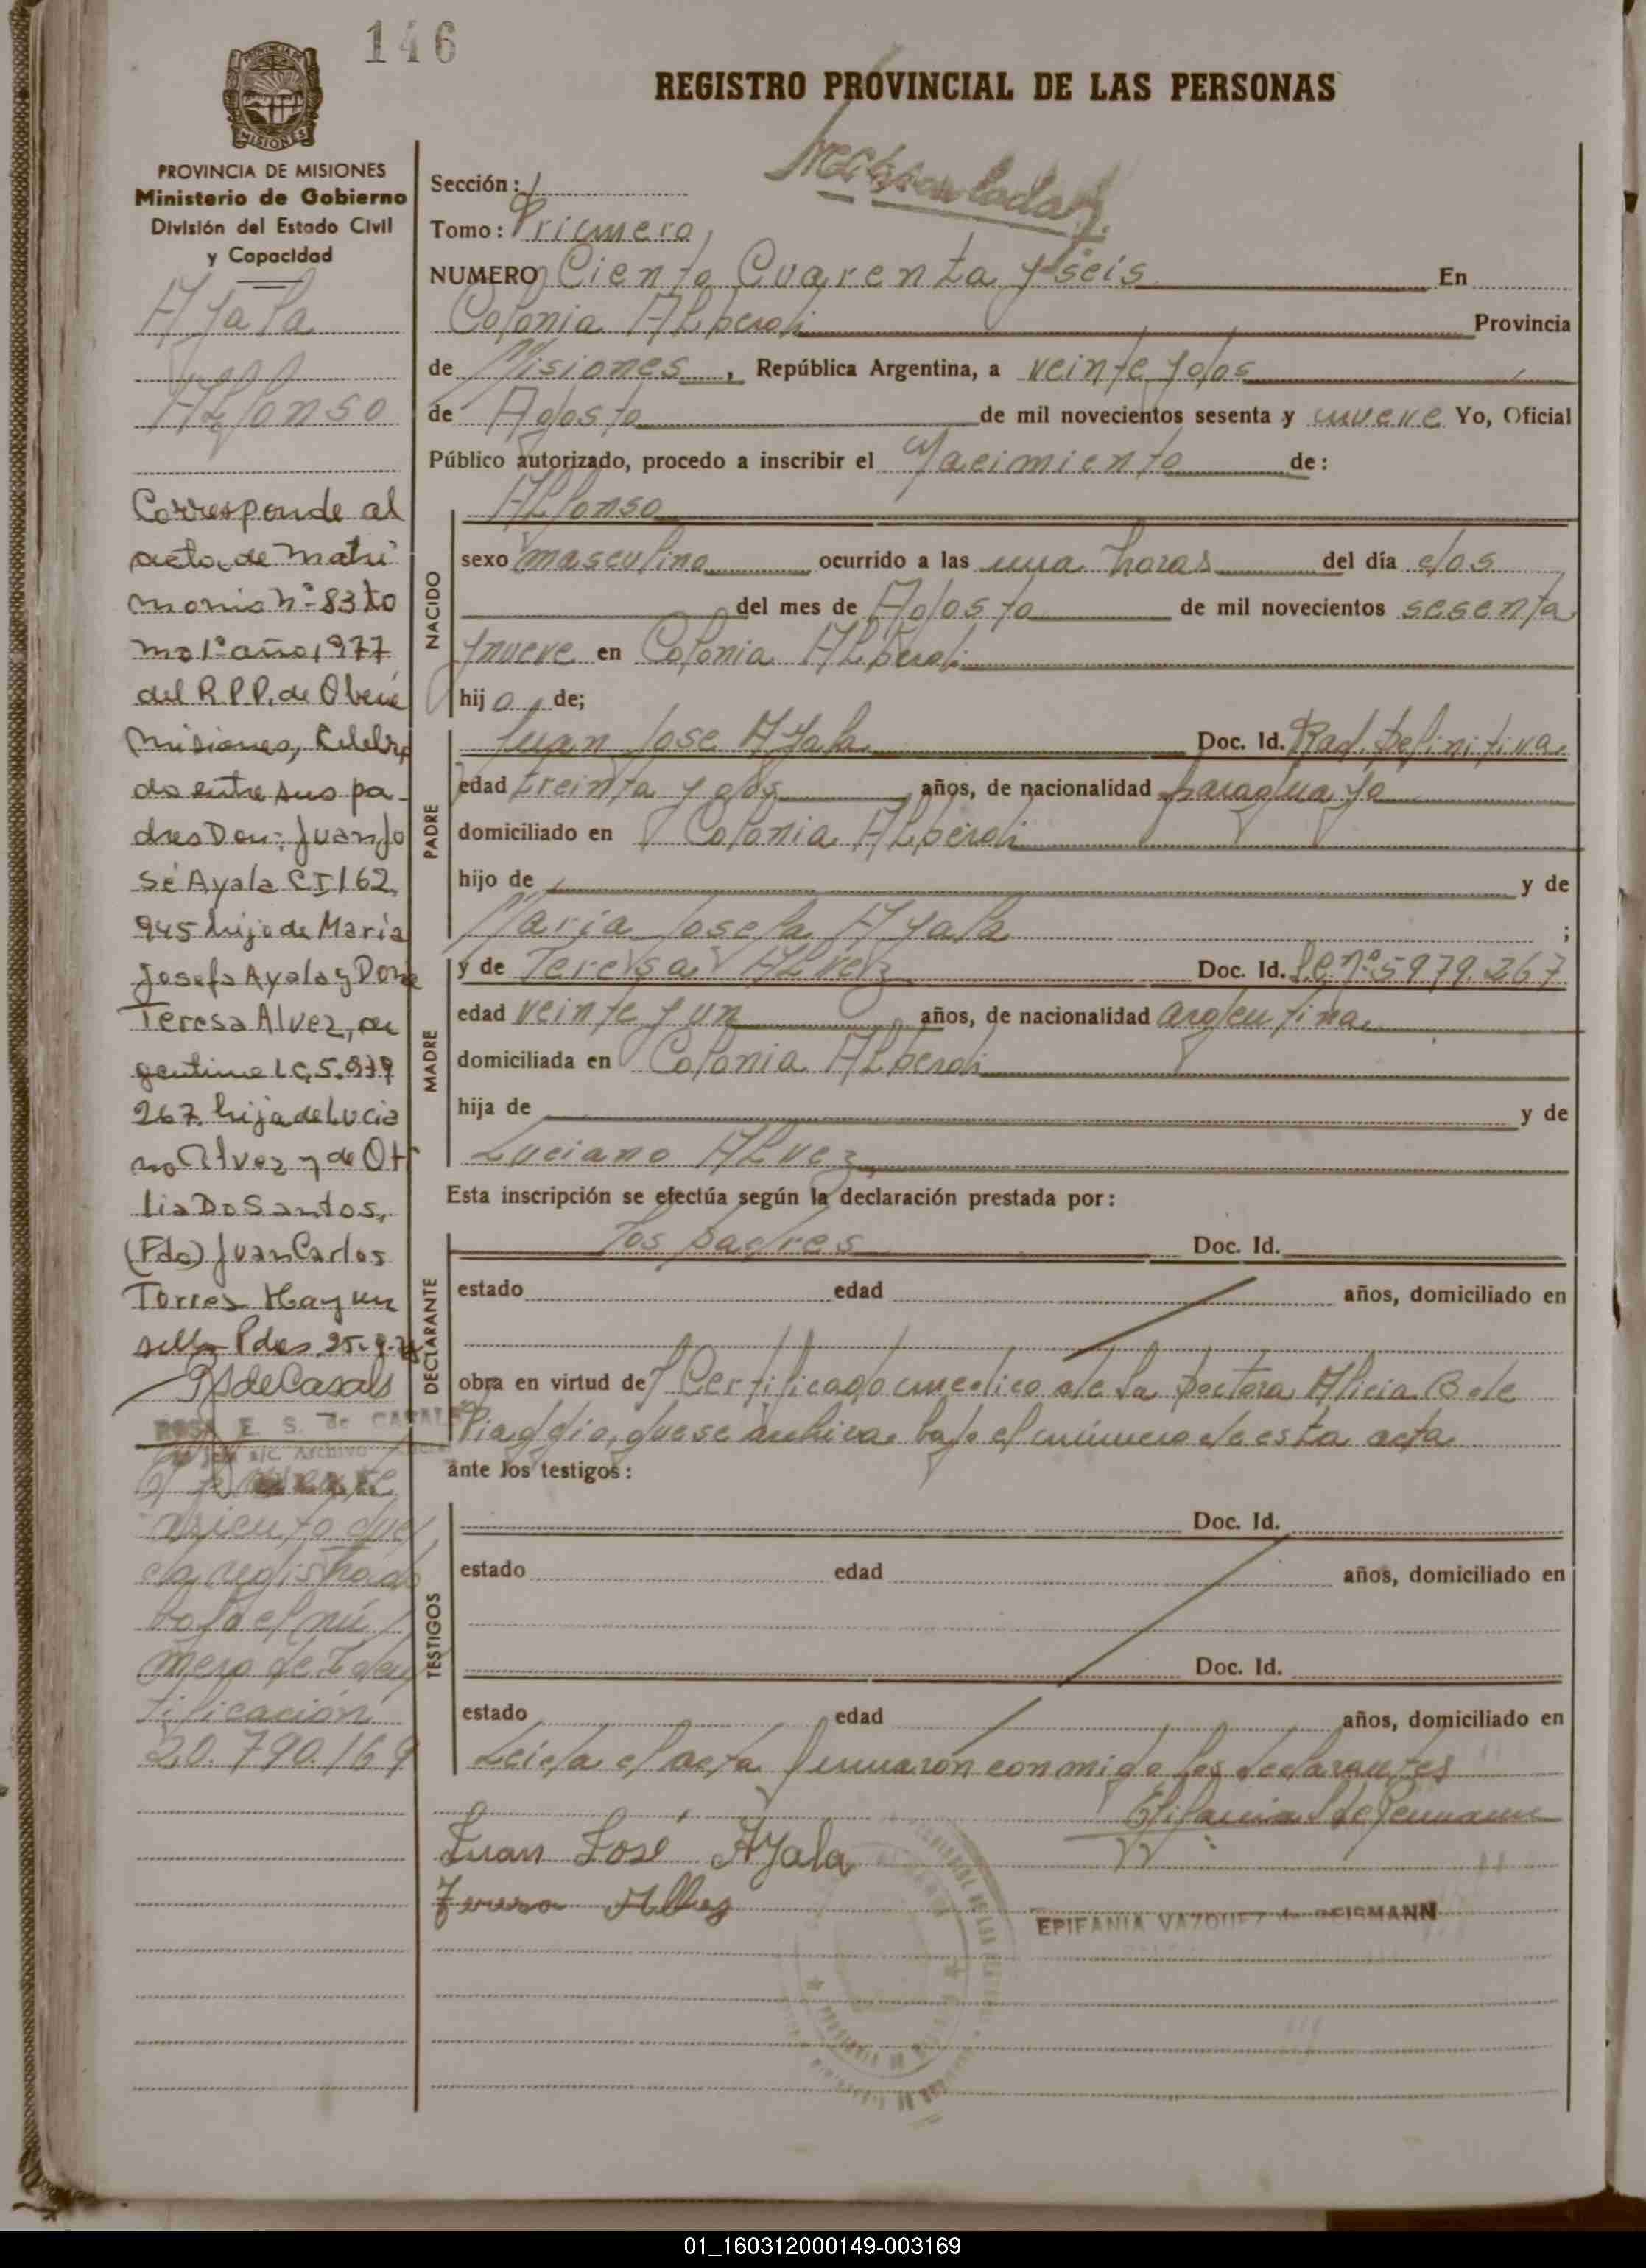 146
REGISTRO PROVINCIAL DE LAS PERSONAS
PROVINCIA DE MISIONES
Ministerio de Gobierno
División del Estado Civil
y Capacidad
Ayala
Alfonso
Corresponde al
acta de matri
monio nº 83 to
mo 1º año 1977
del R.P.P. de Oberá
Misiones, Celebra
do entre sus pa-
dres Don: Juan Jo
sé Ayala CI 162.
945 hijo de María
Josefa Ayala y Doña
Teresa Alvez, ar
gentina LC. 5.979
267. hija de Lucia
no Alvez y de Oti
lia Do Santos.
(Fdo) Juan Carlos
Torres Hay un
sello Pdas 25.
RSdeCasals
ROSA E. S. de CASALS
a/c Archivo
miento que
da registrado
bajo el nú
mero de Iden
tificación
20.790.169
Sección: 1
Tomo: Primero
NUMERO Ciento Cuarenta y seis En
Colonia Alberdi Provincia
de Misiones, República Argentina, a veinte y dos
de Agosto de mil novecientos sesenta y nueve Yo, Oficial
Público autorizado, procedo a inscribir el Nacimiento de:
NACIDO
Alfonso
sexo masculino ocurrido a las una horas del día dos
del mes de Agosto de mil novecientos sesenta
y nueve en Colonia Alberdi
hijo de;
PADRE
Juan Jose Ayala Doc. Id. Rad. Definitiva
edad treinta y dos años, de nacionalidad paraguayo
domiciliado en Colonia Alberdi
hijo de y de
Maria Josefa Ayala ;
MADRE
y de Teresa Alvez Doc. Id. L.C. nº 5979.267
edad veinte y un años, de nacionalidad argentina
domiciliada en Colonia Alberdi
hija de y de
Luciano Alvez
Esta inscripción se efectúa según la declaración prestada por:
DECLARANTE
los padres Doc. Id.
estado edad años, domiciliado en
obra en virtud del Certificado medico de la Doctora Alicia B de
Piaggio, que se archiva bajo el número de esta acta
ante los testigos:
TESTIGOS
Doc. Id.
estado edad años, domiciliado en
Doc. Id.
estado edad años, domiciliado en
Leida el acta firmaron conmigo los declarantes
Juan José Ayala
Teresa Albes
EPIFANIA VAZQUEZ de REISMANN
01_160312000149-003169